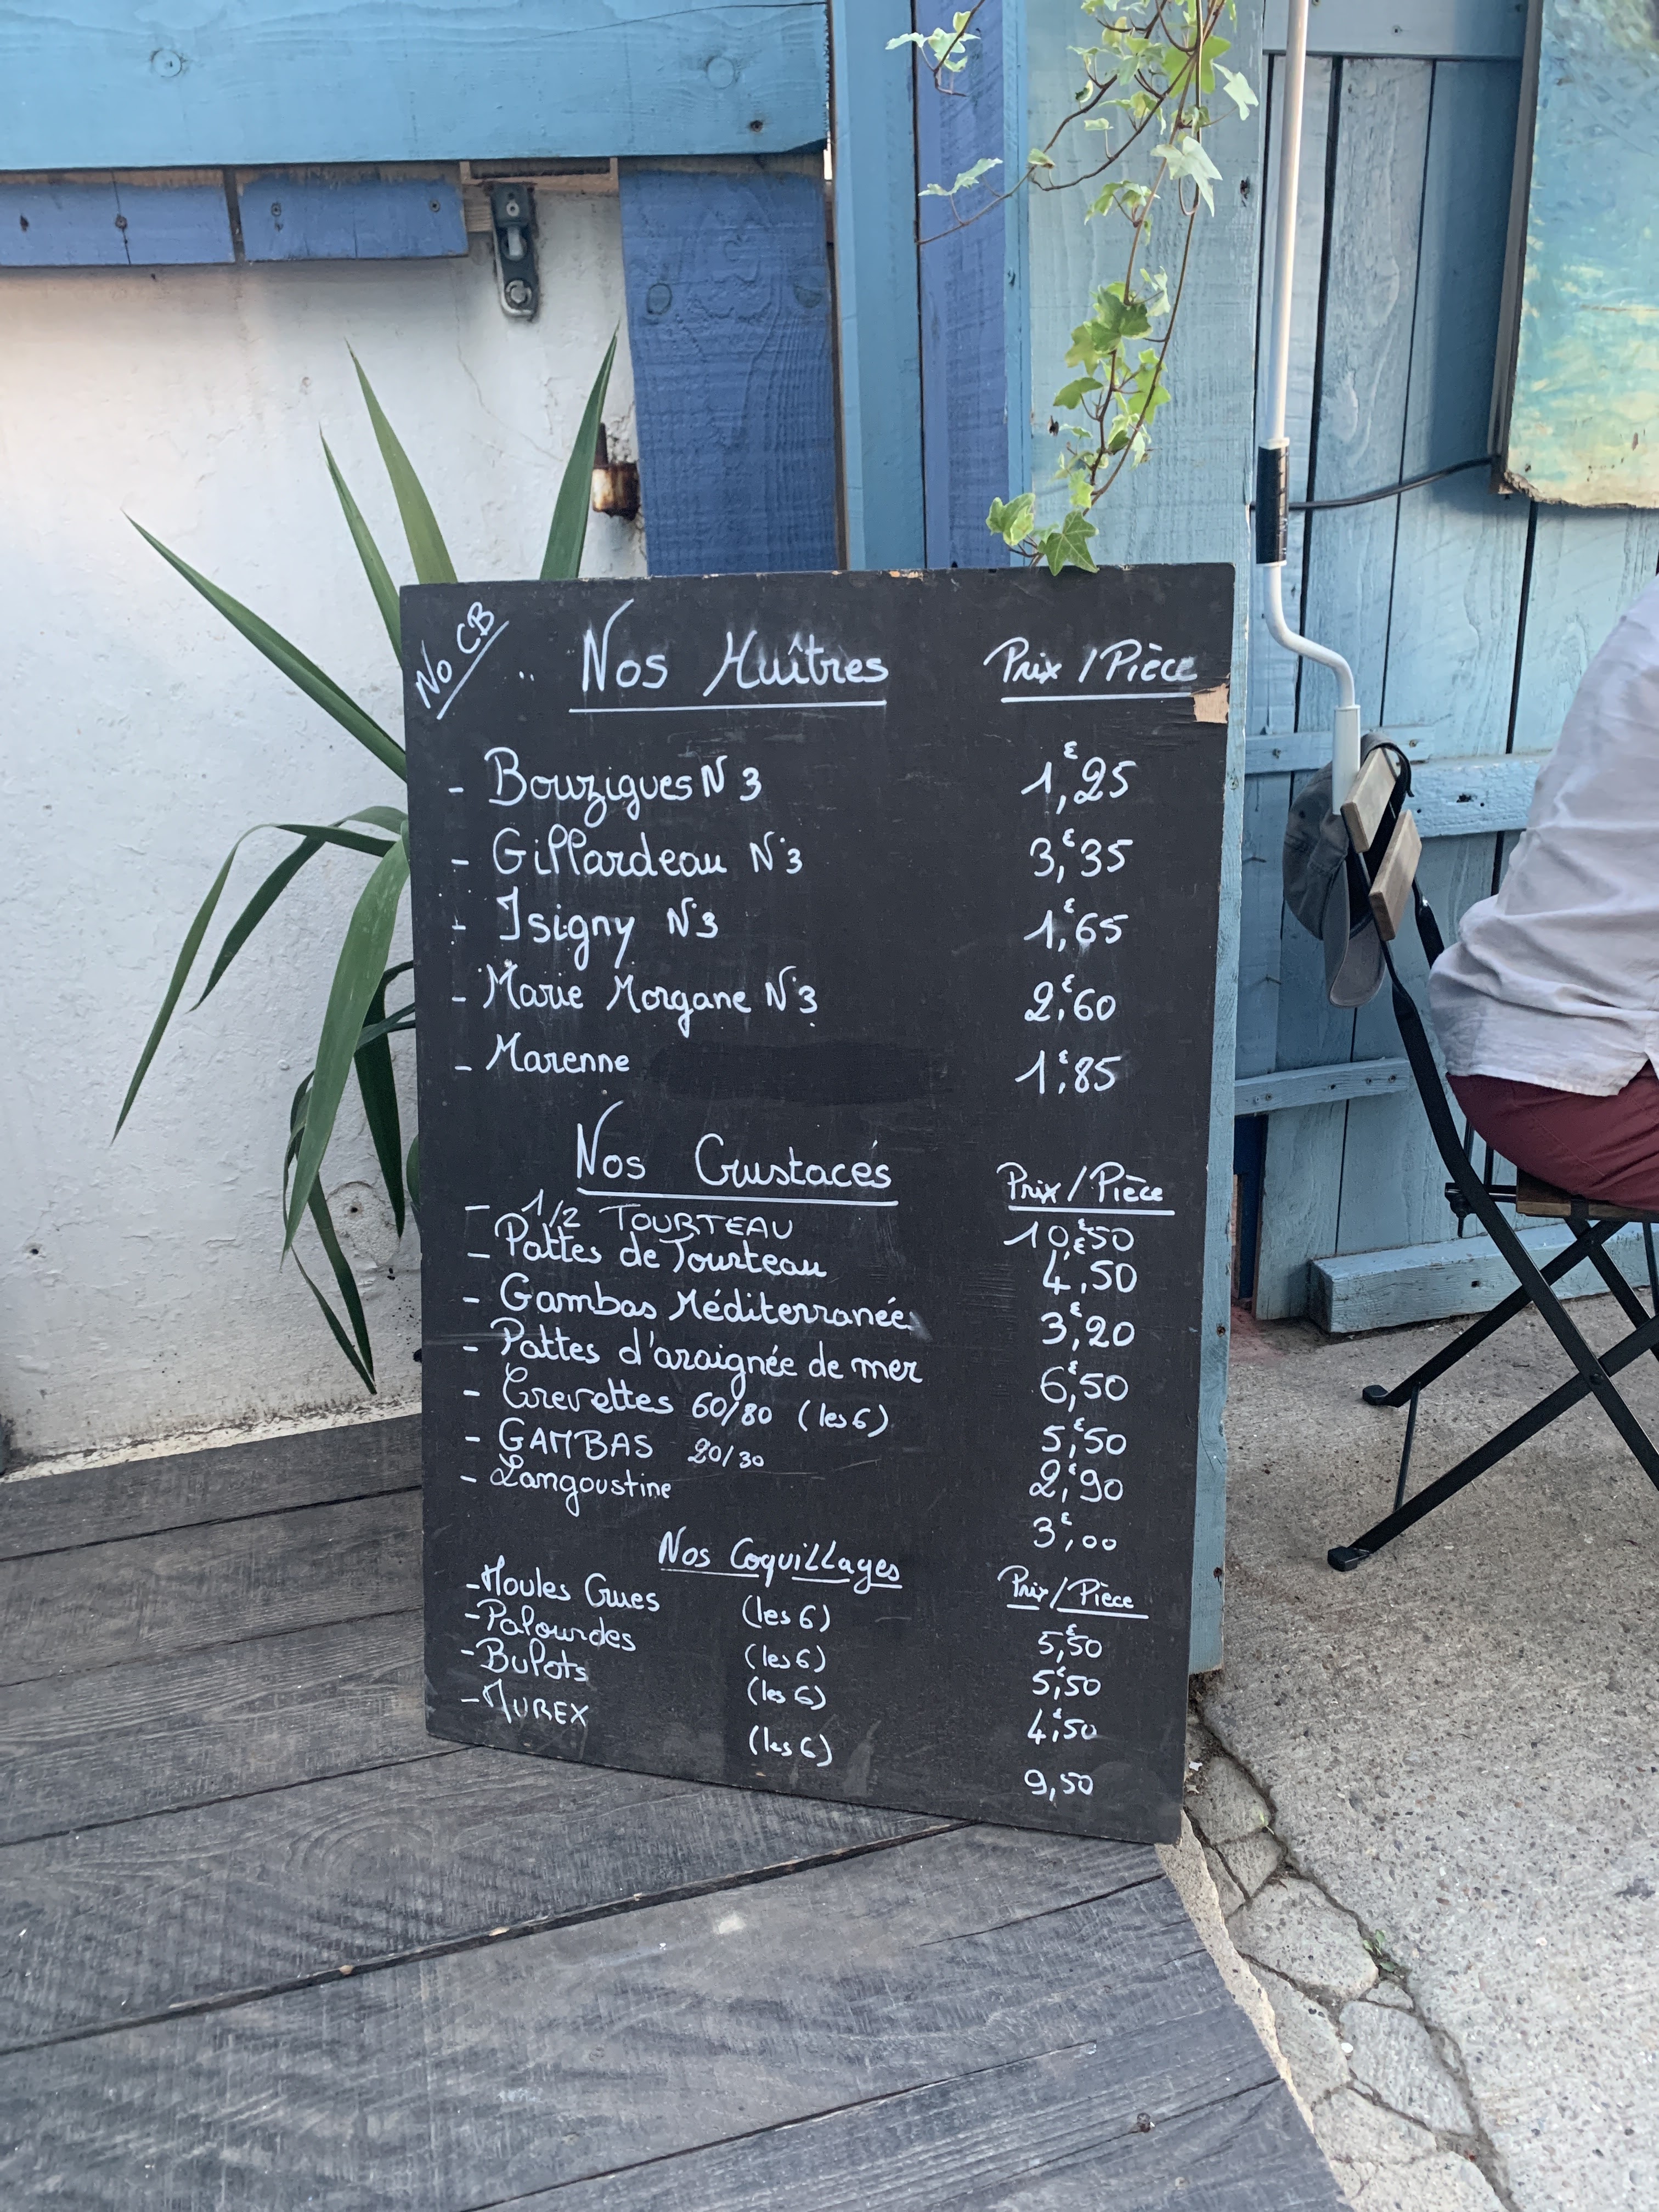 No CB
Nos Huîtres Prix / Pièce
- Bouzigues N 3 1,€25
- Gillardeau N°3 3,€35
- Isigny N°3 1,€65
- Marie Morgane N°3 2,€60
- Marenne 1,€85
Nos Crustacés Prix / Pièce
- 1/2 TOURTEAU 10,€50
- Pattes de Tourteau 4,€50
- Gambas Méditerranée 3,€20
- Pattes d'araignée de mer 6,€50
- Crevettes 60/80 (les 6) 5,€50
- GAMBAS 20/30 2,€90
- Langoustine 3,€00
Nos Coquillages Prix / Pièce
- Moules Crues (les 6) 5,€50
- Palourdes (les 6) 5,€50
- Bulots (les 6) 4,€50
- MUREX (les 6) 9,50